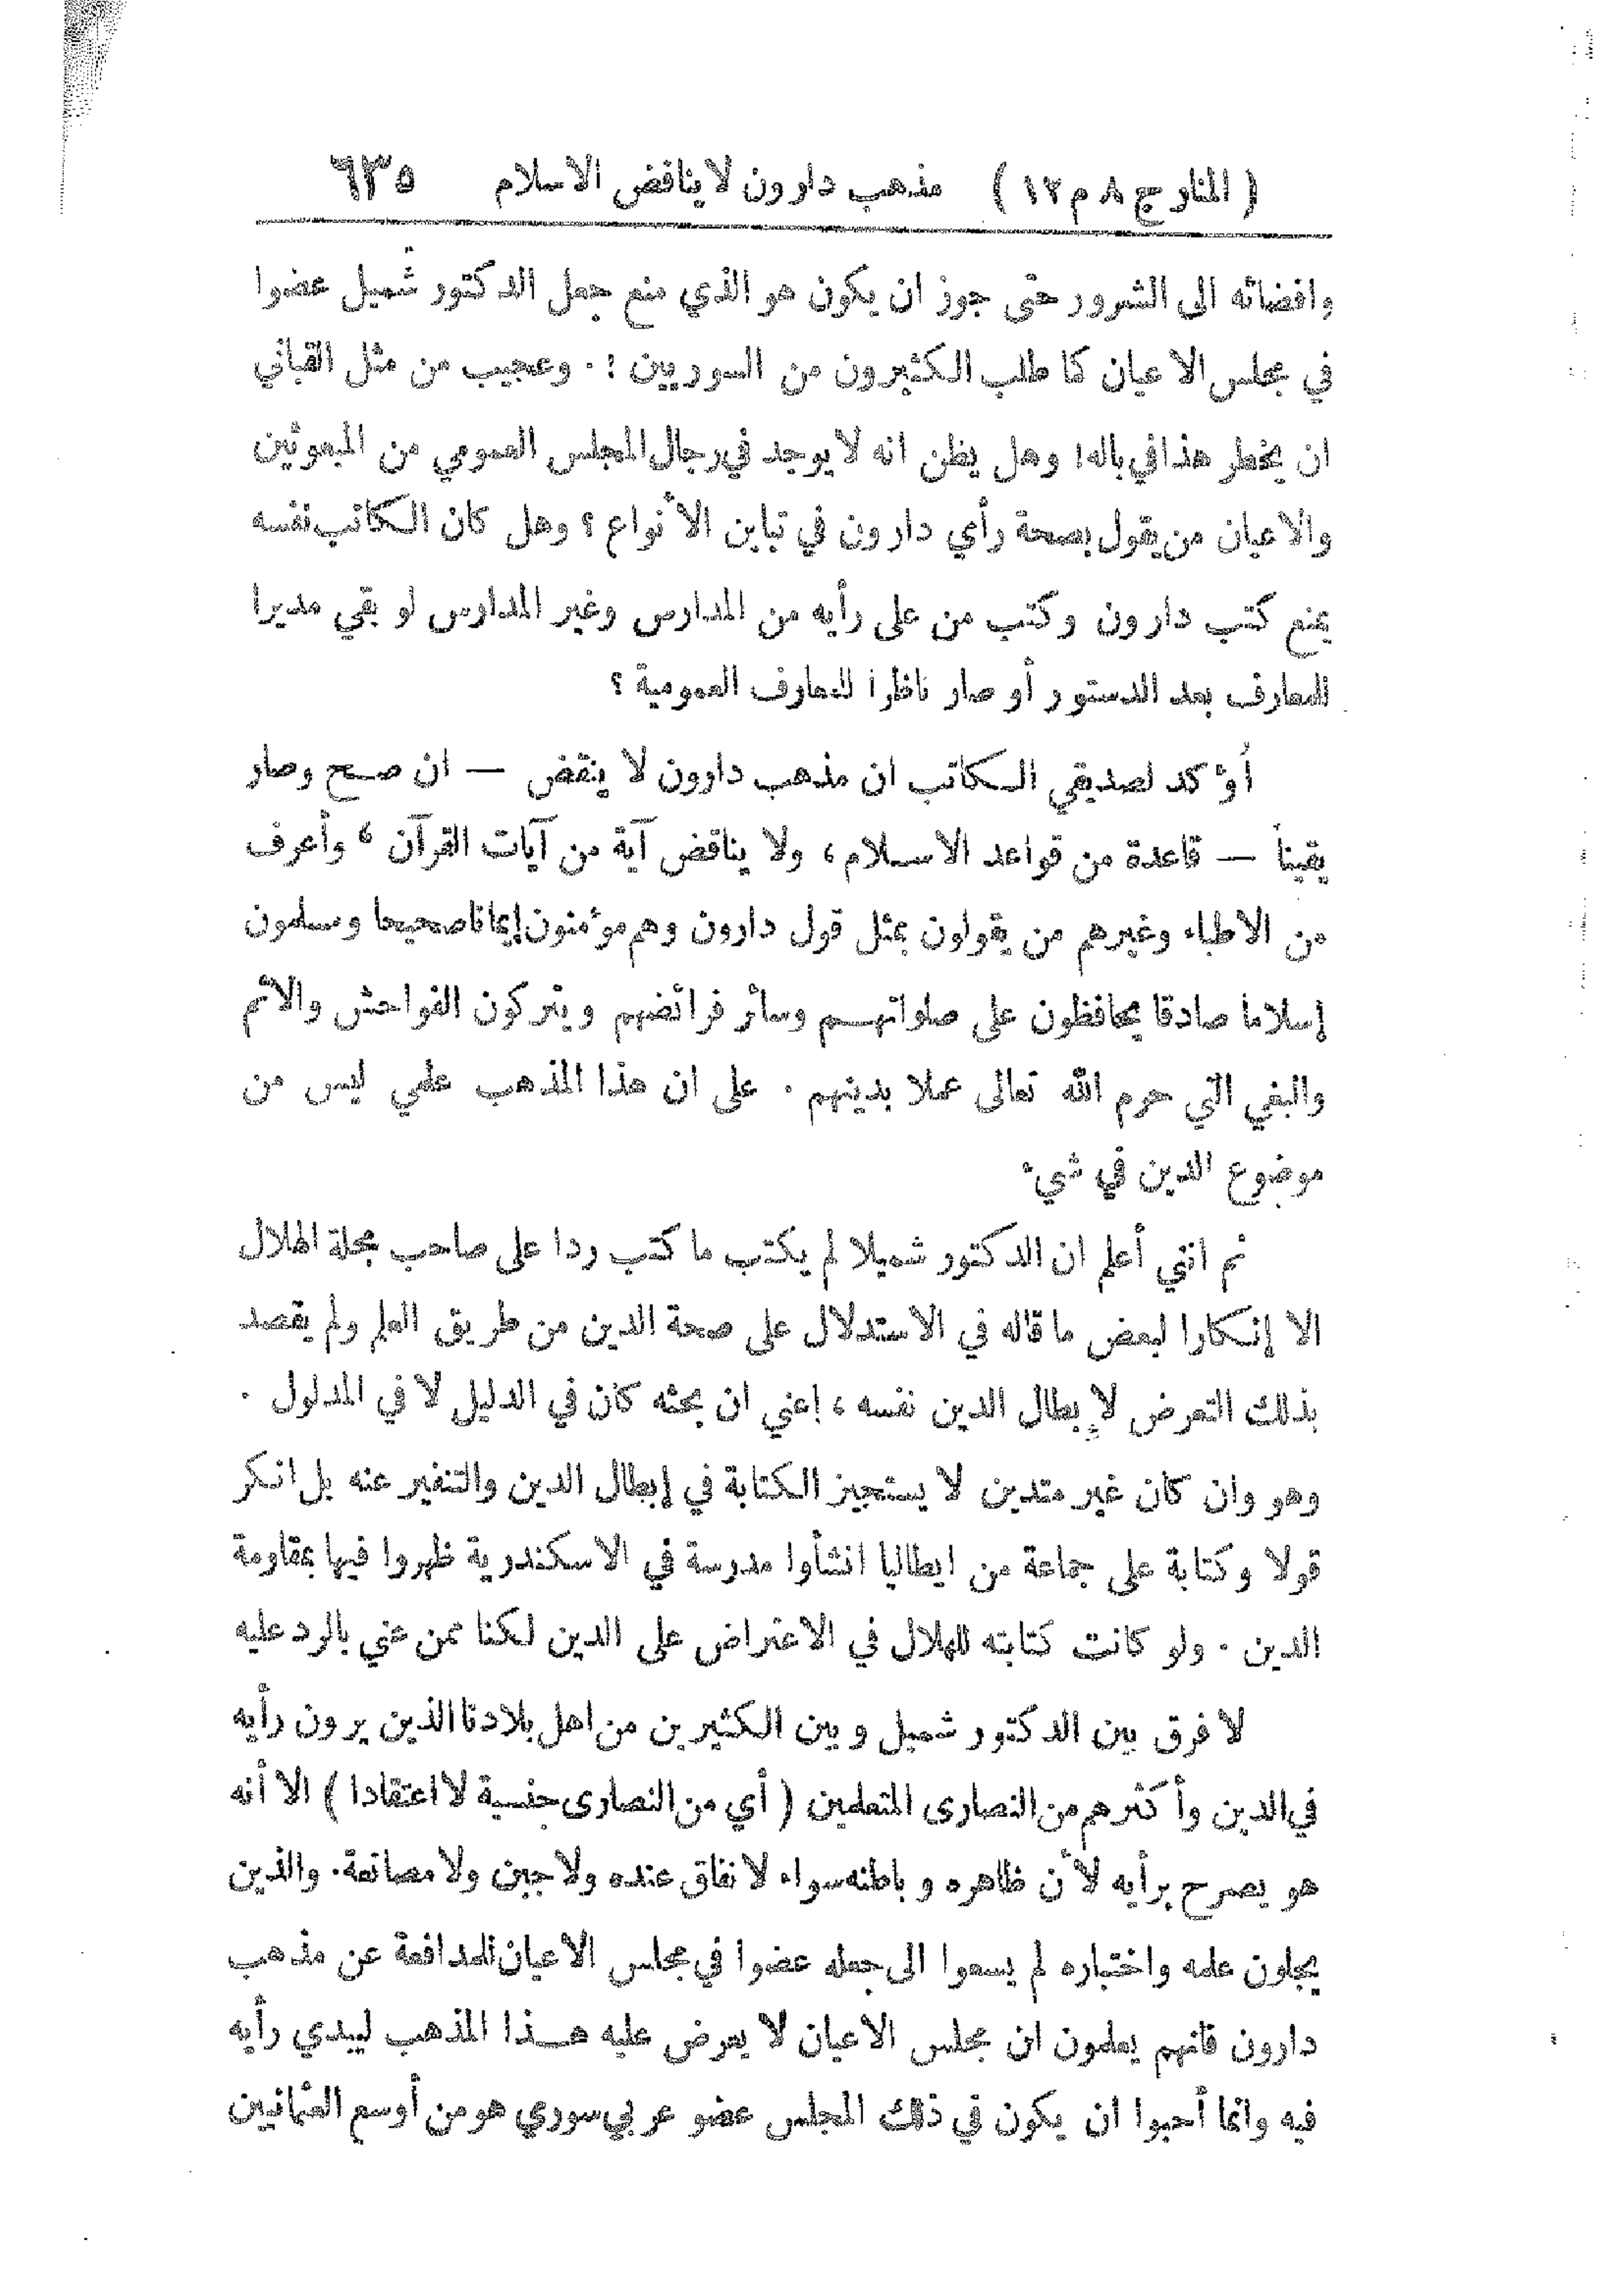 ( المنار ج ٨ م ١٢ ) مذهب دارون لا يناقض الاسلام ٦٣٥
وافضائه الى الشرور حتى جوز ان يكون هو الذي منع جعل الدكتور شميل عضوا
في مجلس الاعيان كما طلب الكثيرون من السوريين ! . وعجيب من مثل القباني
ان يخطر هذا في باله! وهل يظن انه لا يوجد في رجال المجلس العمومي من المبعوثين
والاعيان من يقول بصحة رأي دارون في تباين الأنواع ؟ وهل كان الكاتب نفسه
يمنع كتب دارون وكتب من على رأيه من المدارس وغير المدارس لو بقي مديرا
للمعارف بعد الدستور أو صار ناظرا للمعارف العمومية ؟
أؤكد لصديقي الكاتب ان مذهب دارون لا ينقض — ان صح وصار
يقيناً — قاعدة من قواعد الاسلام ، ولا يناقض آية من آيات القرآن ، وأعرف
من الاطباء وغيرهم من يقولون بمثل قول دارون وهم مؤمنون إيمانا صحيحا ومسلمون
إسلاما صادقا يحافظون على صلواتهم وسائر فرائضهم ويتركون الفواحش والاثم
والبغي التي حرم الله تعالى عملا بدينهم . على ان هذا المذهب علمي ليس من
موضوع الدين في شيء
ثم انني أعلم ان الدكتور شميلا لم يكتب ما كتب ردا على صاحب مجلة الهلال
الا إنكارا لبعض ما قاله في الاستدلال على صحة الدين من طريق العلم ولم يقصد
بذلك التعرض لإبطال الدين نفسه ، اعني ان بحثه كان في الدليل لا في المدلول .
وهو وان كان غير متدين لا يستجيز الكتابة في إبطال الدين والتنفير عنه بل انكر
قولا وكتابة على جماعة من ايطاليا انشأوا مدرسة في الاسكندرية ظهروا فيها بمقاومة
الدين . ولو كانت كتابته للهلال في الاعتراض على الدين لكنا ممن عني بالرد عليه
لا فرق بين الدكتور شميل وبين الكثيرين من اهل بلادنا الذين يرون رأيه
في الدين وأكثرهم من النصارى المتعلمين ( أي من النصارى جنسية لا اعتقادا ) الا أنه
هو يصرح برأيه لأن ظاهره وباطنه سواء لا نفاق عنده ولا جبن ولا مصانعة. والذين
يجلون علمه واختباره لم يسعوا الى جعله عضوا في مجلس الاعيان للمدافعة عن مذهب
دارون فانهم يعلمون ان مجلس الاعيان لا يعرض عليه هذا المذهب ليبدي رأيه
فيه وانما أحبوا ان يكون في ذلك المجلس عضو عربي سوري هو من أوسع العثمانيين